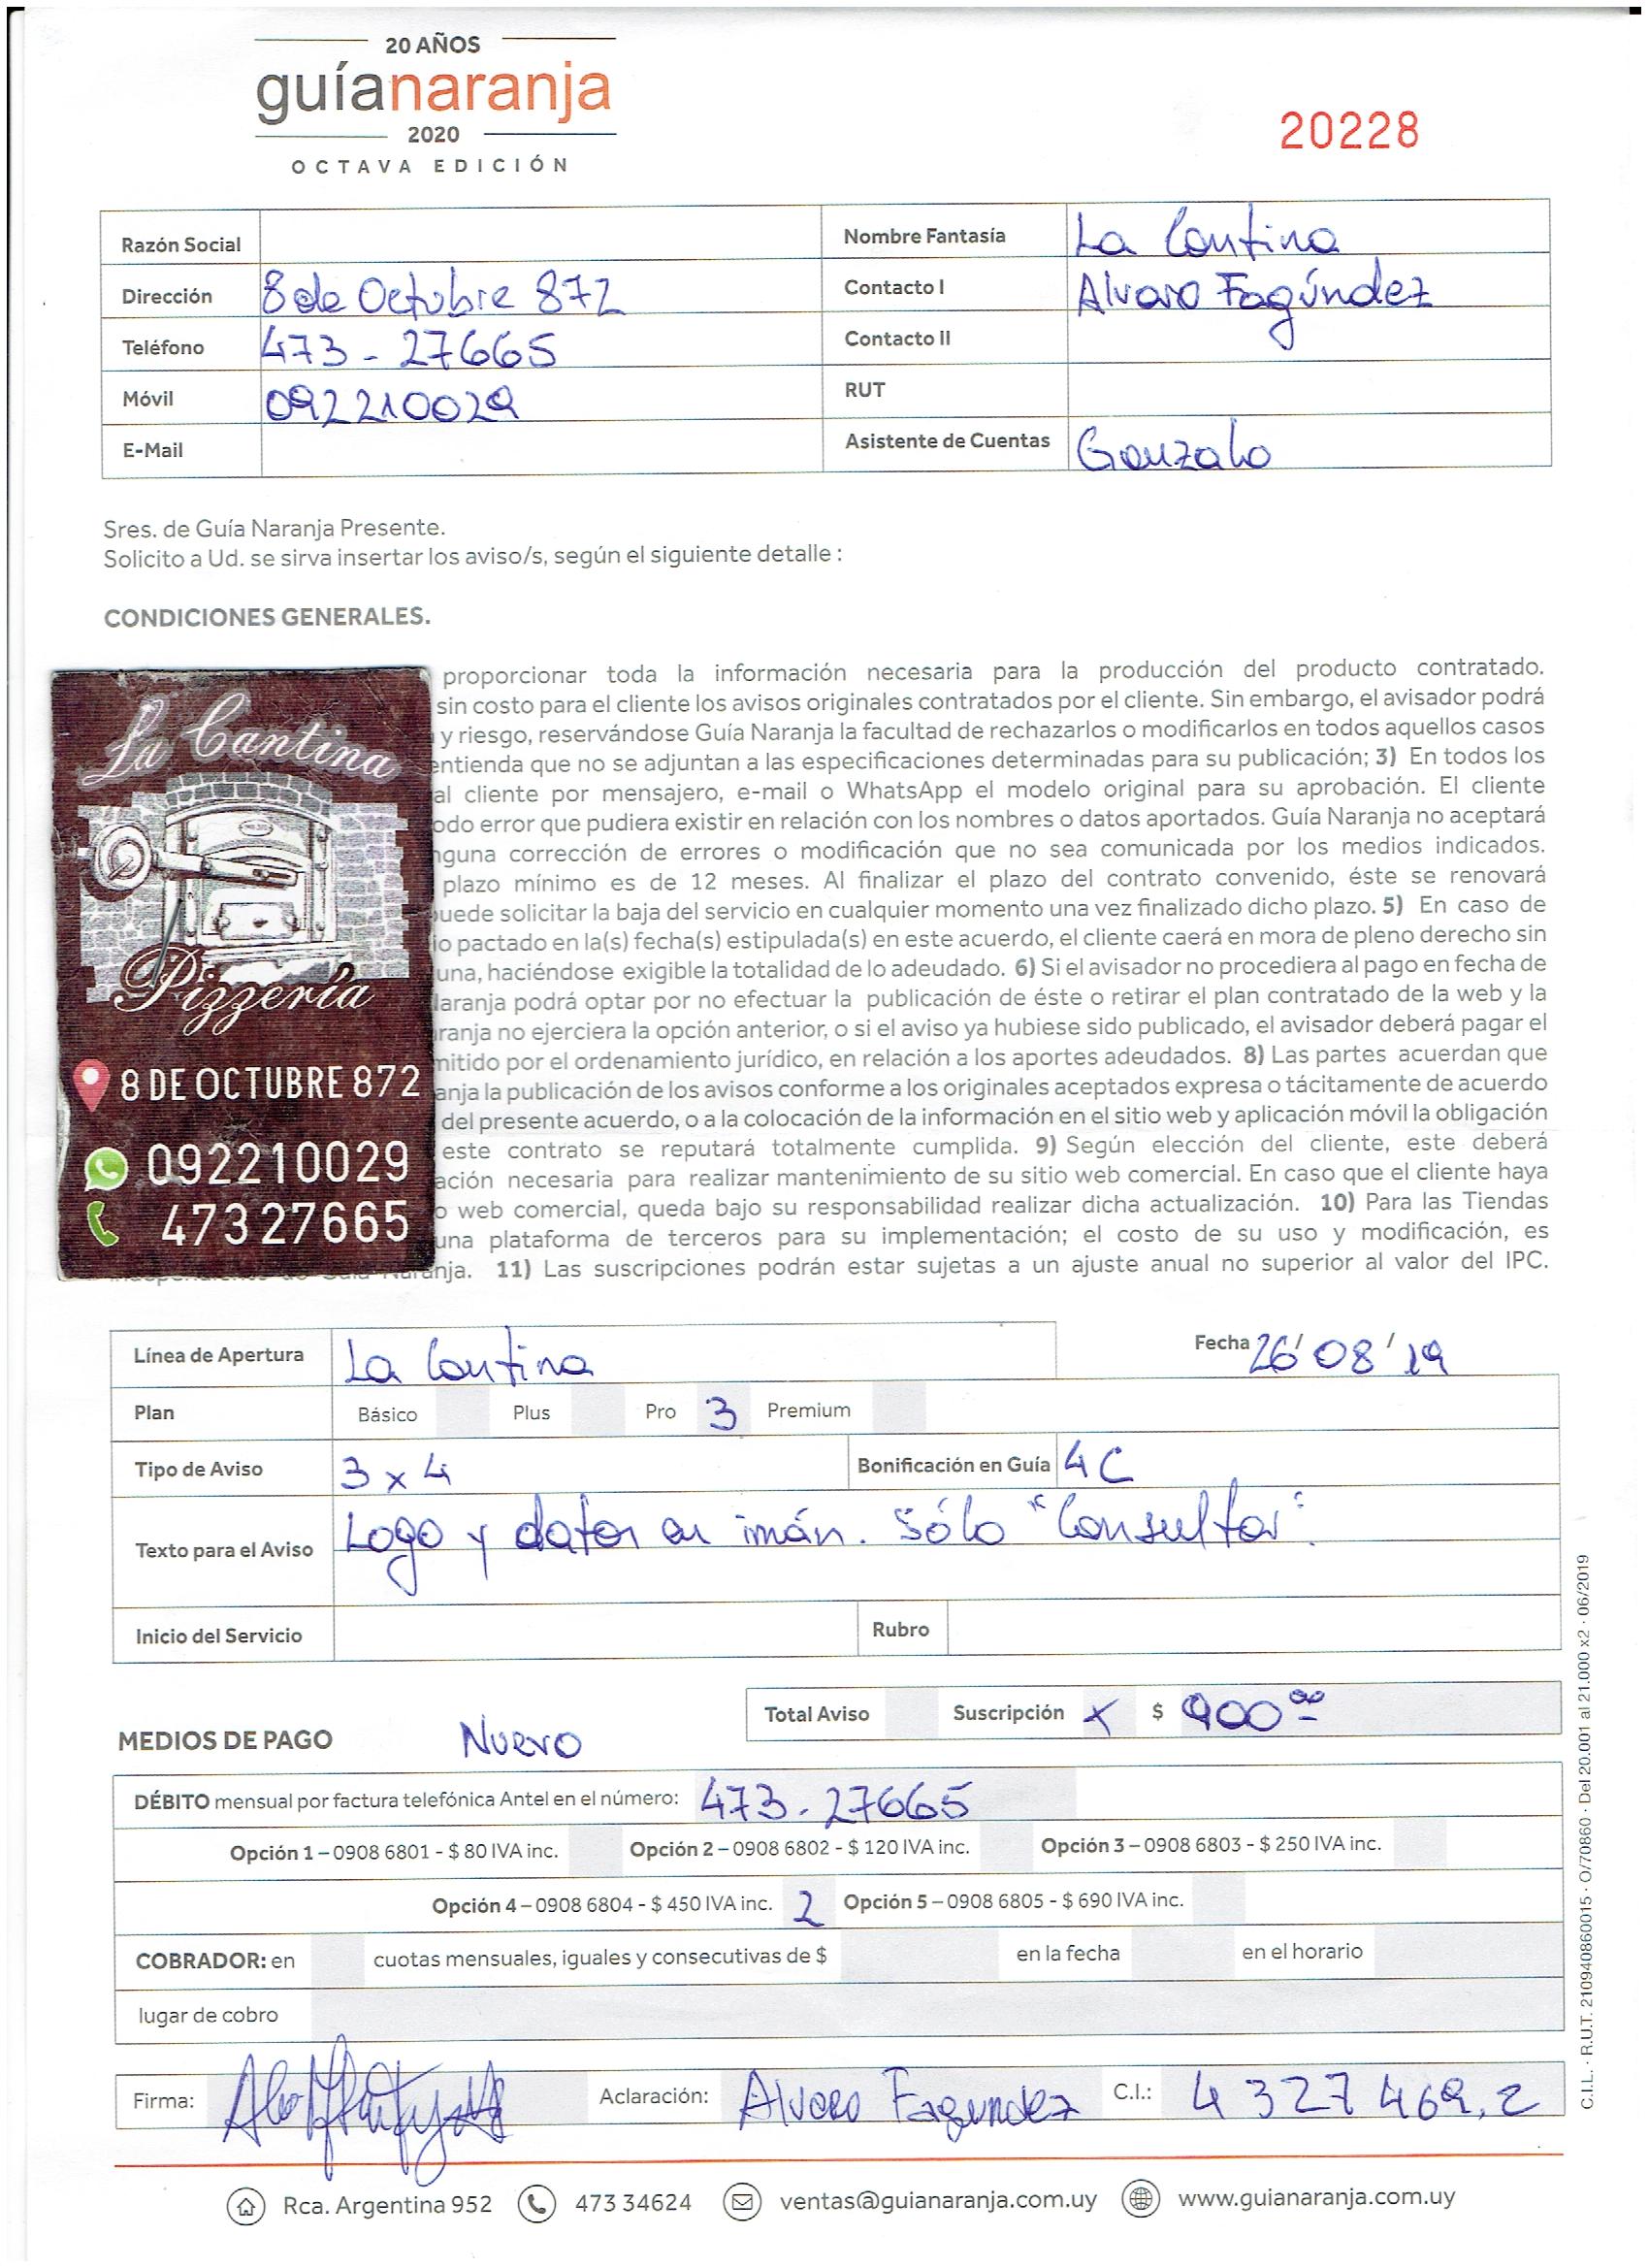 20 AÑOS
guíanaranja
2020
OCTAVA EDICIÓN
20228
Razón Social
Nombre Fantasía La Cantina
Dirección 8 de Octubre 872
Contacto I Alvaro Fagúndez
Teléfono 473 - 27665
Contacto II
Móvil 092210029
RUT
E-Mail
Asistente de Cuentas Gonzalo
Sres. de Guía Naranja Presente.
Solicito a Ud. se sirva insertar los aviso/s, según el siguiente detalle :
CONDICIONES GENERALES.
proporcionar toda la información necesaria para la producción del producto contratado.
sin costo para el cliente los avisos originales contratados por el cliente. Sin embargo, el avisador podrá
y riesgo, reservándose Guía Naranja la facultad de rechazarlos o modificarlos en todos aquellos casos
entienda que no se adjuntan a las especificaciones determinadas para su publicación; 3) En todos los
al cliente por mensajero, e-mail o WhatsApp el modelo original para su aprobación. El cliente
odo error que pudiera existir en relación con los nombres o datos aportados. Guía Naranja no aceptará
nguna corrección de errores o modificación que no sea comunicada por los medios indicados.
plazo mínimo es de 12 meses. Al finalizar el plazo del contrato convenido, éste se renovará
uede solicitar la baja del servicio en cualquier momento una vez finalizado dicho plazo. 5) En caso de
io pactado en la(s) fecha(s) estipulada(s) en este acuerdo, el cliente caerá en mora de pleno derecho sin
una, haciéndose exigible la totalidad de lo adeudado. 6) Si el avisador no procediera al pago en fecha de
Naranja podrá optar por no efectuar la publicación de éste o retirar el plan contratado de la web y la
ranja no ejerciera la opción anterior, o si el aviso ya hubiese sido publicado, el avisador deberá pagar el
mitido por el ordenamiento jurídico, en relación a los aportes adeudados. 8) Las partes acuerdan que
anja la publicación de los avisos conforme a los originales aceptados expresa o tácitamente de acuerdo
del presente acuerdo, o a la colocación de la información en el sitio web y aplicación móvil la obligación
este contrato se reputará totalmente cumplida. 9) Según elección del cliente, este deberá
ación necesaria para realizar mantenimiento de su sitio web comercial. En caso que el cliente haya
o web comercial, queda bajo su responsabilidad realizar dicha actualización. 10) Para las Tiendas
una plataforma de terceros para su implementación; el costo de su uso y modificación, es
independiente de Guía Naranja. 11) Las suscripciones podrán estar sujetas a un ajuste anual no superior al valor del IPC.
La Cantina
Pizzería
8 DE OCTUBRE 872
092210029
47327665
Línea de Apertura La Cantina
Fecha 26/08/19
Plan Básico Plus Pro 3 Premium
Tipo de Aviso 3 x 4 Bonificación en Guía 4C
Texto para el Aviso Logo y datos en imán. Sólo "Consultas".
Inicio del Servicio Rubro
Total Aviso Suscripción x $ 900 00
MEDIOS DE PAGO Nuevo
DÉBITO mensual por factura telefónica Antel en el número: 473-27665
Opción 1 – 0908 6801 - $ 80 IVA inc. Opción 2 – 0908 6802 - $ 120 IVA inc. Opción 3 – 0908 6803 - $ 250 IVA inc.
Opción 4 – 0908 6804 - $ 450 IVA inc. 2 Opción 5 – 0908 6805 - $ 690 IVA inc.
COBRADOR: en cuotas mensuales, iguales y consecutivas de $ en la fecha en el horario
lugar de cobro
Firma: Aclaración: Alvaro Fagundez C.I.: 4327469.2
Rca. Argentina 952 473 34624 ventas@guianaranja.com.uy www.guianaranja.com.uy
C.I.L. · R.U.T. 210940860015 · O/70860 · Del 20.001 al 21.000 x2 · 06/2019